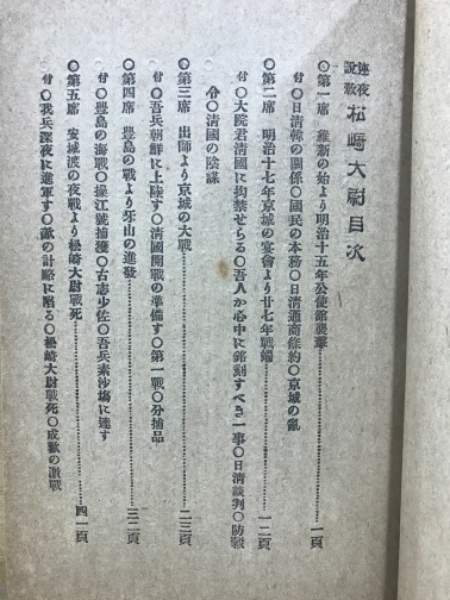 連夜説教 松崎大尉目次
◎第一席 維新の始より明治十五年公使館襲撃…………一頁
付〇日清韓の關係〇國民の本務〇日清通商條約〇京城の亂
◎第二席 明治十七年京城の宴會より廿七年戰端…………一二頁
付〇大院君清國に拘禁せらる〇吾人か心中に銘刻すべき一事〇日清談判〇防穀
令〇清國の陰謀
◎第三席 出師より京城の大戰…………二三頁
付〇吾兵朝鮮に上陸す〇清國開戰の準備す〇第一戰〇分捕品
◎第四席 豊島の戰より牙山の進發…………三二頁
付〇豊島の海戰〇操江號捕獲〇古志少佐〇吾兵素沙塲に達す
◎第五席 安城渡の夜戰より松崎大尉戰死…………四一頁
付〇我兵深夜に進軍す〇敵の計略に陥る〇松崎大尉戰死〇成歡の激戰